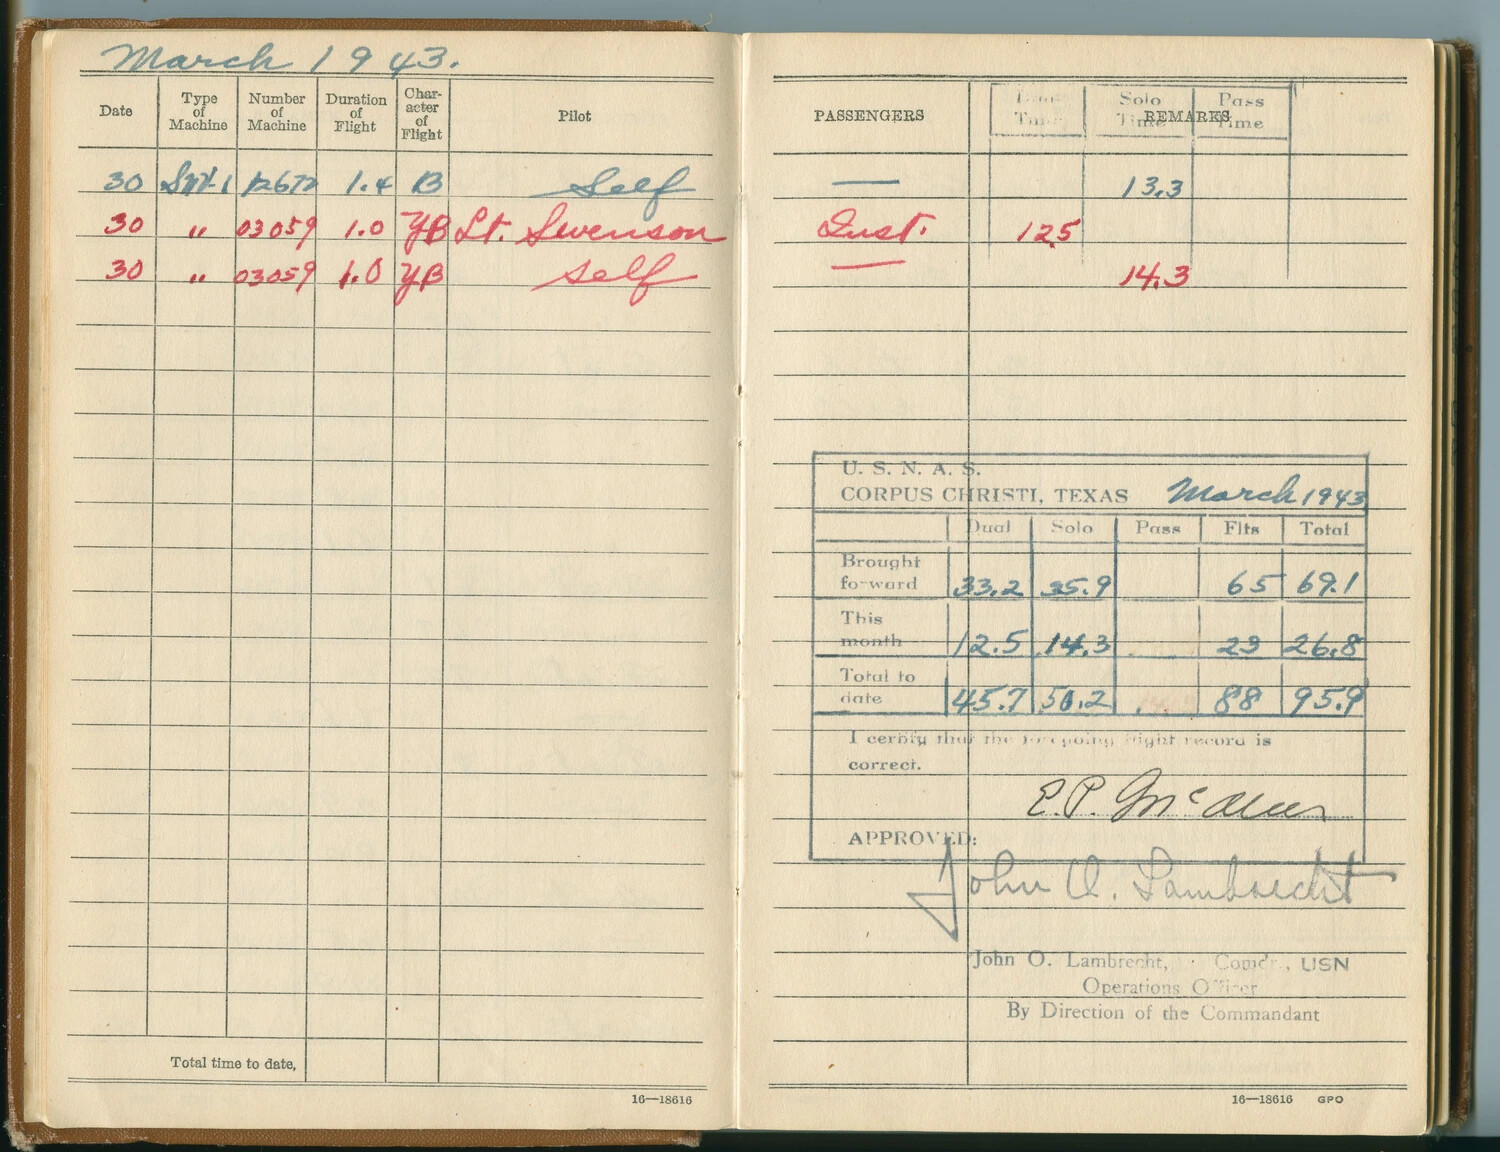 March 1943.
Date Type of Machine Number of Machine Duration of Flight Char-acter of Flight Pilot
30 SNV-1 12672 1.4 B Self
30 " 03059 1.0 YB Lt. Swenson
30 " 03059 1.0 YB Self
Total time to date,
16—18616
PASSENGERS REMARKS
Time Solo Time Pass Time
— 13.3
Inst. 12.5
— 14.3
U. S. N. A. S.
CORPUS CHRISTI, TEXAS March 1943
Dual Solo Pass Flts Total
Brought forward 33.2 35.9 65 69.1
This month 12.5 14.3 23 26.8
Total to date 45.7 50.2 88 95.9
I certify that the foregoing flight record is
correct.
E. P.
APPROVED:
John O. Lambrecht
John O. Lambrecht, Comdr., USN
Operations Officer
By Direction of the Commandant
16—18616 GPO